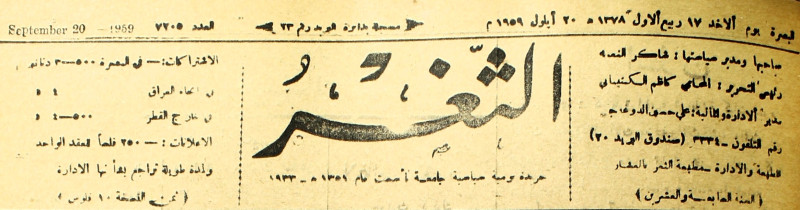 البصرة يوم الاحد ١٧ ربيع الاول ١٣٧٨ هـ ٢٠ أيلول ١٩٥٩ م
مسجلة بدائرة البريد رقم ٢٣
العدد ٧٢٠٥
September 20 - 1959
صاحبها ومدير سياستها : شاكر النعمة
رئيس التحرير : المحامي كاظم
مدير الادارة والمالية : علي حسون
رقم التلفون - ٣٣٣٤ (صندوق البريد ٢٠)
المطبعة والادارة - مطبعة الثغر بالعشار
( السنة السابعة والعشرين )
الثغر
جريدة يومية سياسية جامعة تأسست عام ١٣٥١ هـ - ١٩٣٣
الاشتراكات : - في البصرة ٥٠٠-٣ دنانير
في انحاء العراق ٤ د
في خارج القطر ٥٠٠-٤ د
الاعلانات : - ٢٥٠ فلساً للعقد الواحد
ولمدة طويلة تراجع بشأنها الادارة
( ثمن النسخة ١٠ فلوس )